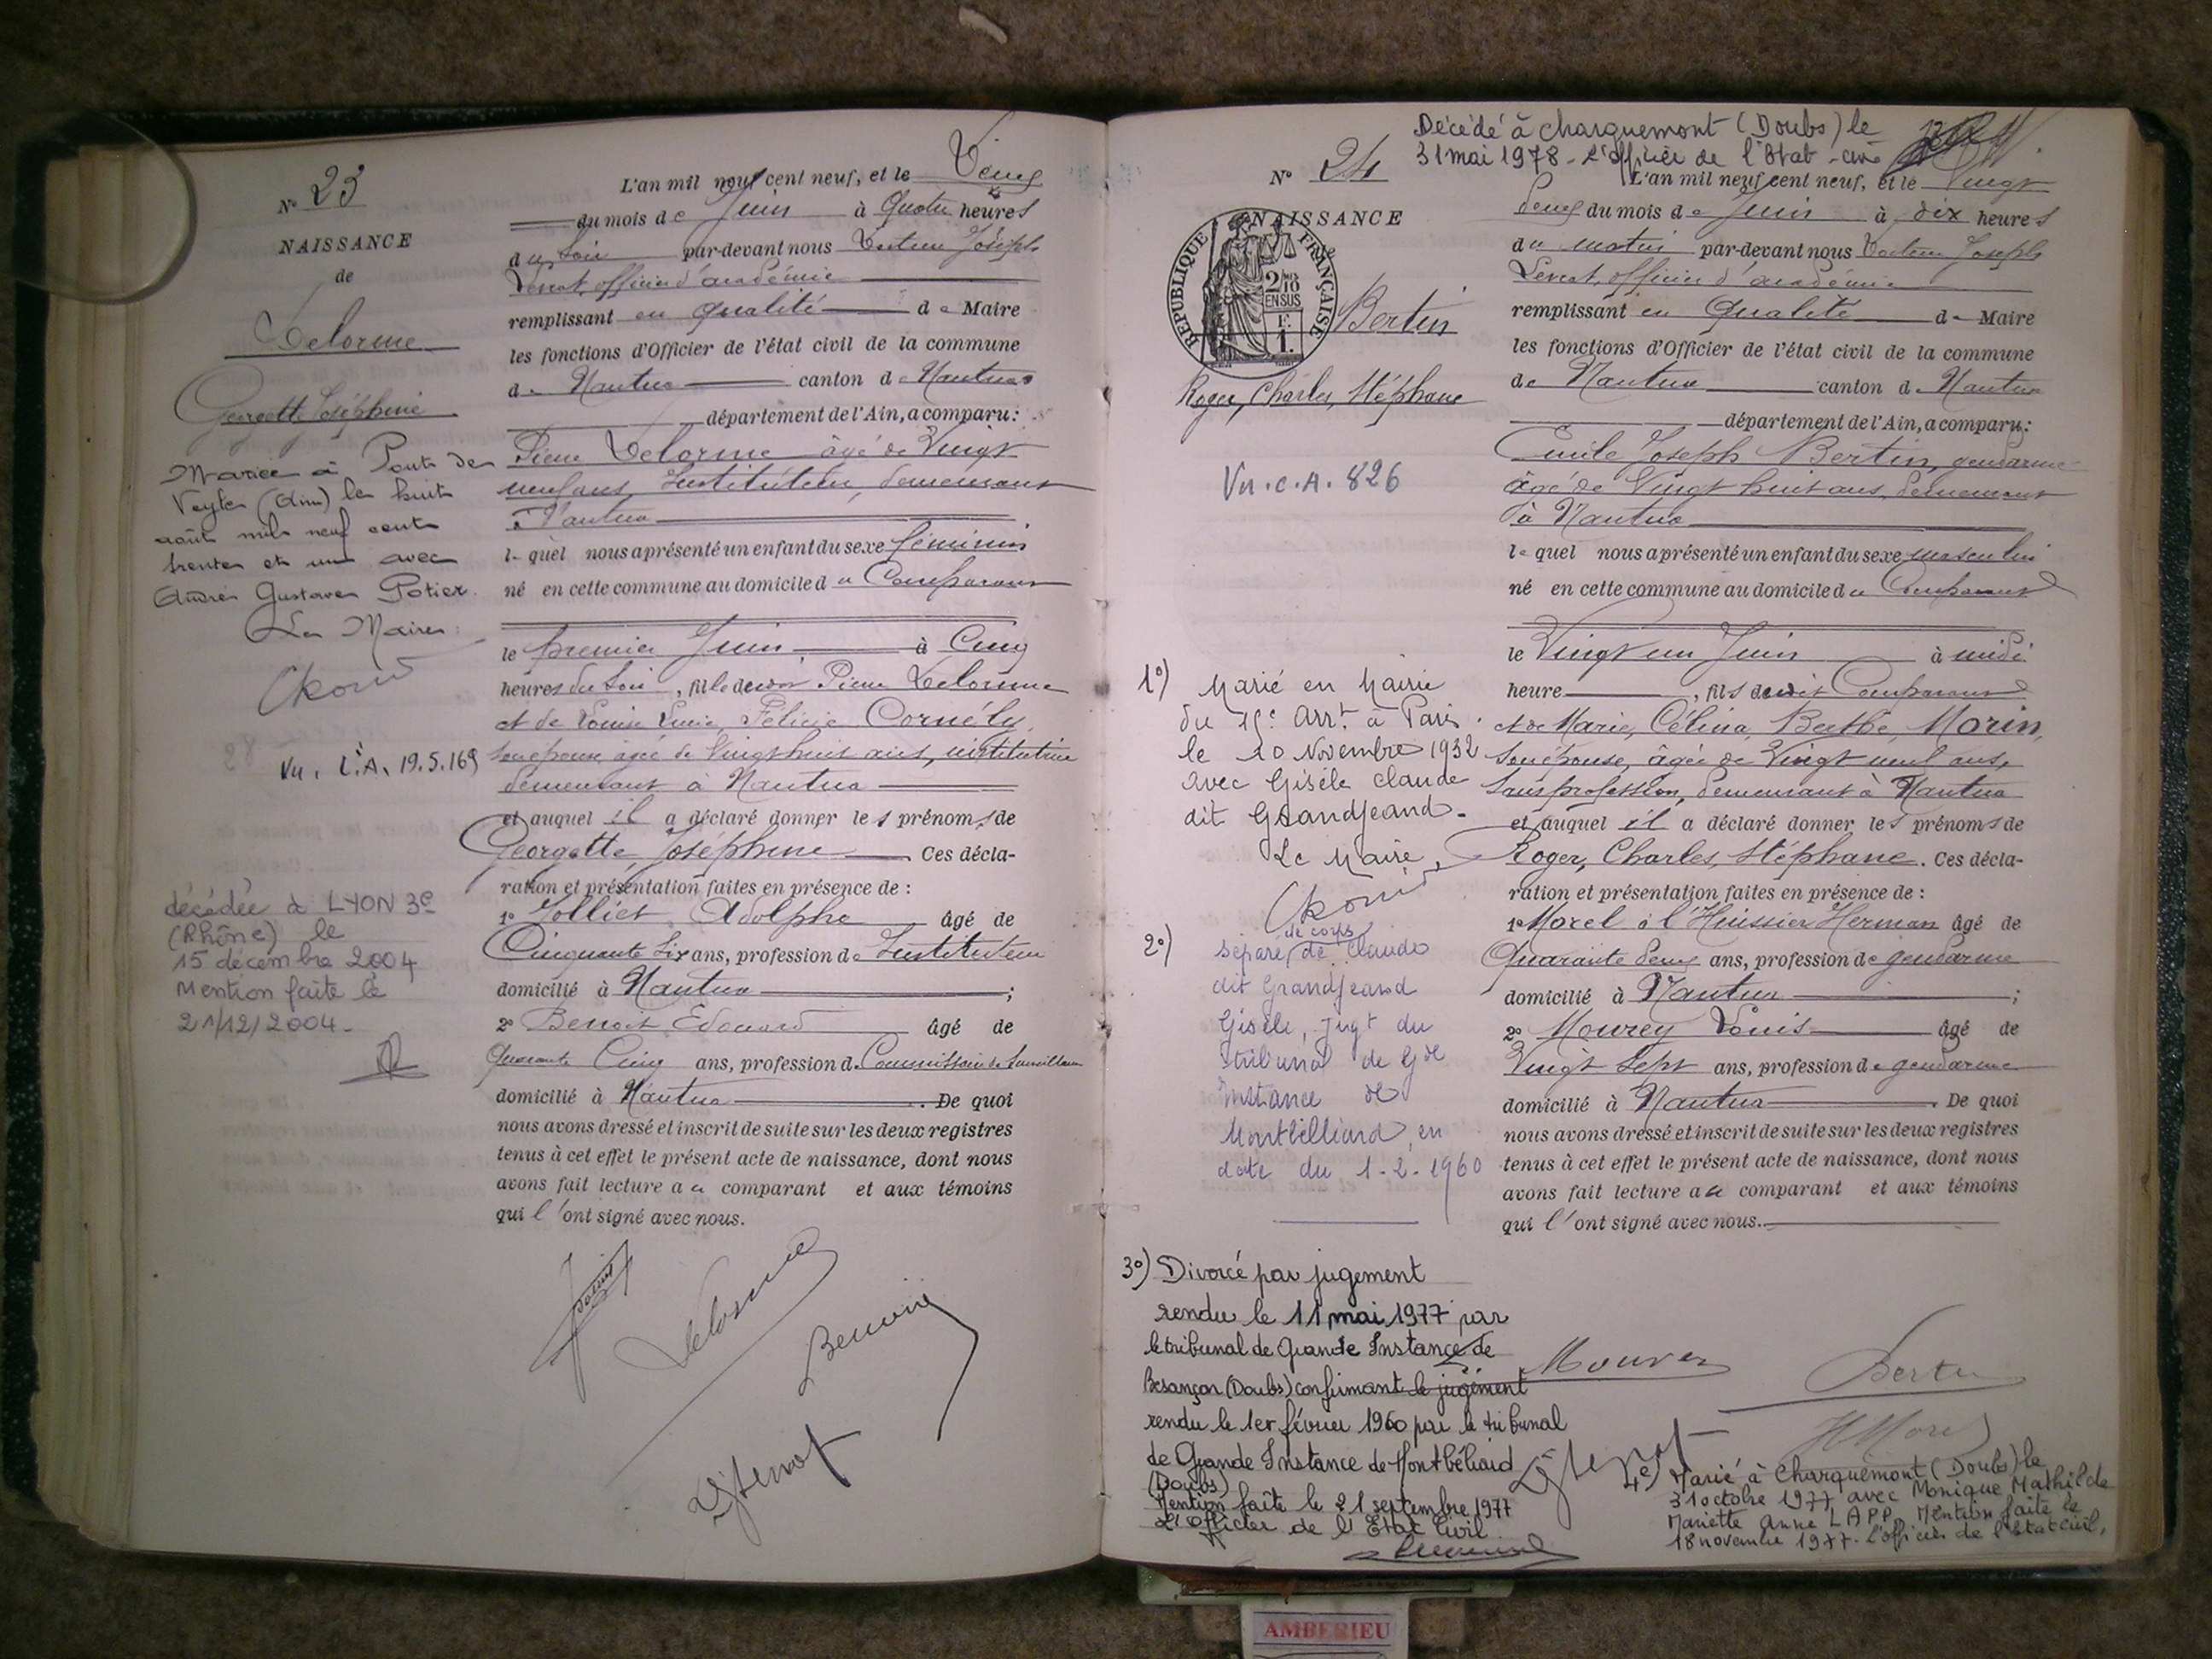 N° 23
NAISSANCE
de
Delorme
Georgette Joséphine
Mariée à Pont de
Veyle (Ain) le huit
août mil neuf cent
trente et un avec
André Gustave Potier.
Le Maire
Vu. L.A. 19.5.169
décédée à LYON 3e
(Rhône) le
15 décembre 2004
Mention faite le
21/12/2004.
L'an mil neuf cent neuf, et le
du mois de Juin à Quatre heures
du soir par-devant nous Docteur Joseph
officier d'académie
remplissant en qualité de Maire
les fonctions d'Officier de l'état civil de la commune
de Nantua canton de Nantua
département de l'Ain, a comparu:
Pierre Delorme âgé de Vingt
neuf ans, Instituteur, demeurant
à Nantua
lequel nous a présenté un enfant du sexe féminin
né en cette commune au domicile du Comparant
le premier Juin à Cinq
heures du soir, fille de Pierre Delorme
et de Louise Lucie Félicie Cornély
son épouse agée de Vingt huit ans, institutrice
demeurant à Nantua
et auquel il a déclaré donner les prénoms de
Georgette Joséphine Ces décla-
ration et présentation faites en présence de :
1° Jolliet Adolphe âgé de
Cinquante six ans, profession de Instituteur
domicilié à Nantua ;
2° Benoit Edouard âgé de
Quarante Cinq ans, profession de Commissaire de Surveillance
domicilié à Nantua . De quoi
nous avons dressé et inscrit de suite sur les deux registres
tenus à cet effet le présent acte de naissance, dont nous
avons fait lecture au comparant et aux témoins
qui l'ont signé avec nous.
Delorme
Décédé à Charquemont (Doubs) le
31 mai 1978 - L'officier de l'Etat-civil
N° 24
NAISSANCE
RÉPUBLIQUE FRANÇAISE
2/10 EN SUS
F. 1.
Bertin
Roger, Charles, Stéphane
Vu.c.A. 826
1°) Marié en Mairie
du 15e Arrt à Paris
le 10 Novembre 1932
avec Gisèle Claude
dit Grandjeand.
Le Maire,
2°) séparé de corps de Claude
dit Grandjeand
Gisèle, Jugt du
tribunal de Gde
Instance de
Montbélliard, en
date du 1-2-1960
3°) Divorcé par jugement
rendu le 11 mai 1977 par
le tribunal de Grande Instance de
Besançon (Doubs) confirmant le jugement
rendu le 1er février 1960 par le tribunal
de Grande Instance de Montbéliard
(Doubs)
Mention faite le 21 septembre 1977
L'Officier de l'Etat Civil
L'an mil neuf cent neuf, et le Vingt
deux du mois de Juin à dix heures
du matin par-devant nous Docteur Joseph
officier d'académie
remplissant en qualité de Maire
les fonctions d'Officier de l'état civil de la commune
de Nantua canton de Nantua
département de l'Ain, a comparu:
Emile Joseph Bertin, gendarme
âgé de Vingt huit ans, demeurant
à Nantua
lequel nous a présenté un enfant du sexe masculin
né en cette commune au domicile du Comparant
le Vingt un Juin à midi
heure , fils dudit Comparant
et de Marie, Célina, Berthe, Morin,
son épouse, âgée de Vingt neuf ans,
sans profession, demeurant à Nantua
et auquel il a déclaré donner les prénoms de
Roger, Charles, Stéphane. Ces décla-
ration et présentation faites en présence de :
1° Morel à l'Huissier Herman âgé de
Quarante deux ans, profession de gendarme
domicilié à Nantua ;
2° Mourey Louis âgé de
Vingt sept ans, profession de gendarme
domicilié à Nantua . De quoi
nous avons dressé et inscrit de suite sur les deux registres
tenus à cet effet le présent acte de naissance, dont nous
avons fait lecture au comparant et aux témoins
qui l'ont signé avec nous.
Mourey
Bertin
HMorel
4e) Marié à Charquemont (Doubs) le
31 octobre 1977 avec Monique Mathilde
Mariette Anne LAPP. Mention faite le
18 novembre 1977. l'officier de l'Etat civil,
AMBERIEU